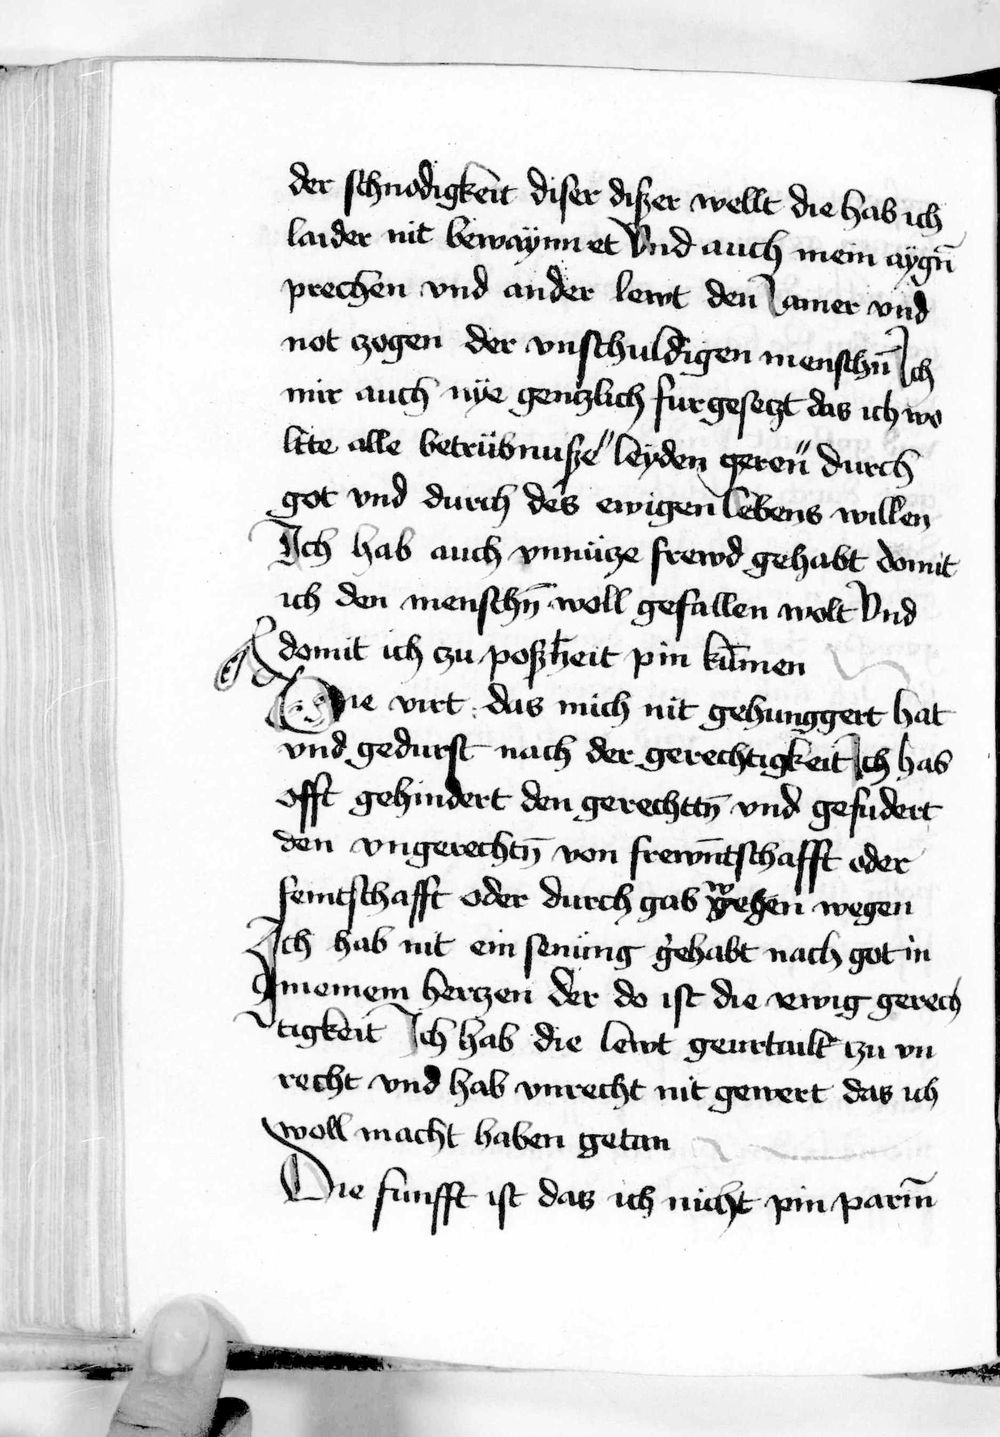 der schnodigkeit diser diszer wellt die hab ich
laider nit bewaÿnnet Vnd auch mein aÿgñ
prechen vnd ander lewt den Jamer vnd
not czogen der vnschuldigen menschñ Ich
mir auch nÿe genczlich fur gesetzt das ich wo
llte alle betrübnusze" leyden geren" durch
got vnd durch des ewigen lebens willen
Ich hab auch vnnücze frewd gehabt domit
ich den menschñ woll gefallen wolt Vnd
domit ich czu poszheit pin kūmen
Die virt das mich nit gehunggert hat
vnd gedurst nach der gerechtigkeit Ich hab
offt gehindert den gerechttñ vnd gefudert
den vngerechtñ von frewñtschafft oder
feintschafft oder durch gab wegen
Ich hab nit ein senüng gehabt nach got in
meinem herczen der do ist die ewig gerech
tigkeit Ich hab die lewt geurtailt czu vn
recht vnd hab vnrecht nit gewert das ich
woll macht haben getan
Die funfft ist das ich nicht pin parm̄